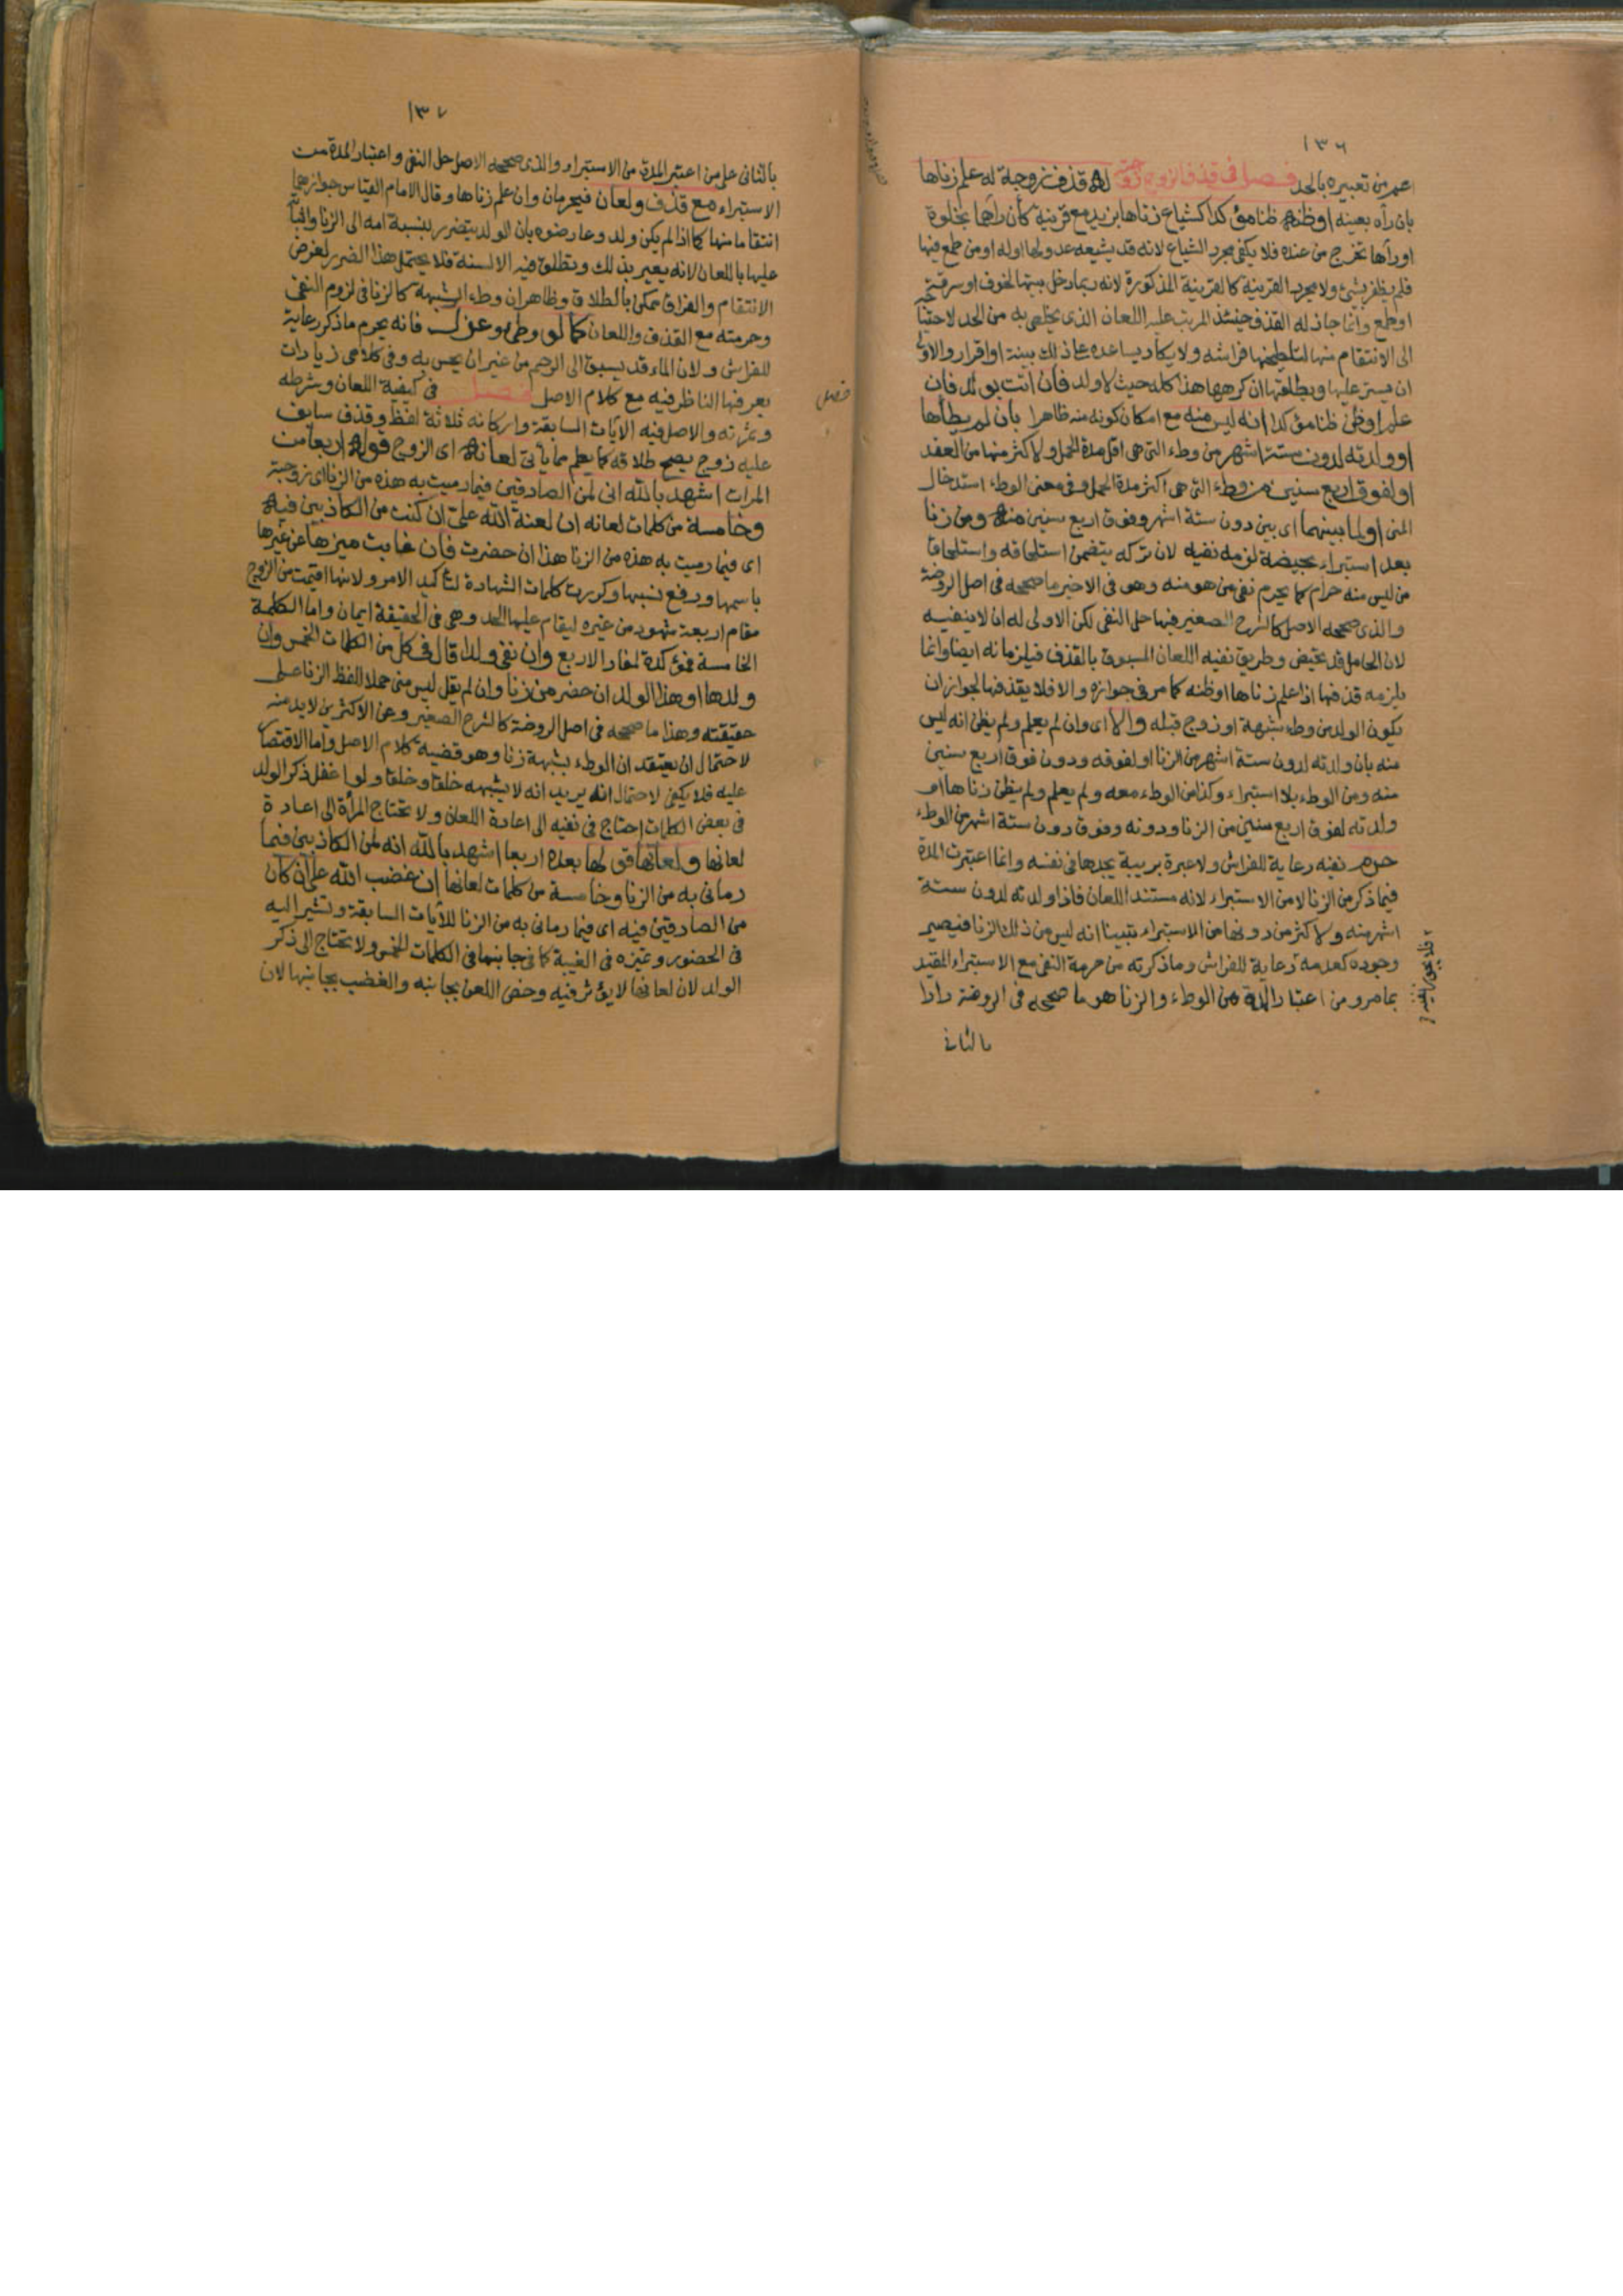 ١٣٦
اعم من تعبيره بالحد فصل فى قذف الزوج زوجته له قذف زوجة له علم زناها
بان رآه بعينه اوظنه ظنا مؤكدا كشياع زناها بزيد مع قرينة كأن رآهما بخلوة
اورآها تخرج من عنده فلا يكفى مجرد الشياع لانه قد يشيعه عدو لها اوله اومن طمع فيها
فلم يظفر بشئ ولا مجرد القرينة كالقرينة المذكورة لانه ربما دخل بيتها لخوف اوسرقة
اوطمع وانما جاز له القذف حينئذ المرتب عليه اللعان الذى يخلص به من الحد لاحتياجه
الى الانتقام منها لتلطيخها فراشه ولا يكاد يساعده على ذلك بينة اواقرار والاولى
ان يستر عليها ويطلقها ان كرهها هذا كله حيث لا ولد فان اتت بولد فان
علم اوظن ظنا مؤكدا انه ليس منه مع امكان كونه منه ظاهرا بأن لم يطأها
اوولدته لدون ستة اشهر من وطء التى هى اقل مدة الحمل ولاكثر منها من العقد
اولفوق اربع سنين من وطء التى هى اكثر مدة الحمل وفى معنى الوطء استدخال
المنى اولما بينهما اى بين دون ستة اشهر وفوق اربع سنين منه ومن زنا
بعد استبراء بحيضة لزمه نفيه لان تركه يتضمن استلحاقه واستلحاق
من ليس منه حرام كما يحرم نفى من هو منه وهو فى الاخير ما صححه فى اصل الروضة
والذى صححه الاصل كالشرح الصغير فيها حل النفى لكن الاولى له ان لا ينفيه
لان الحامل قد تحيض وطريق نفيه اللعان المسبوق بالقذف فيلزمانه ايضا وانما
يلزمه قذفها اذا علم زناها اوظنه كما مر فى جوازه والا فلا يقذفها لجواز ان
يكون الولد من وطء شبهة اوزوج قبله والا اى وان لم يعلم ولم يظن انه ليس
منه بان ولدته لدون ستة اشهر من الزنا اولفوقه ودون فوق اربع سنين
منه ومن الوطء بلا استبراء وكذا من الوطء معه ولم يعلم ولم يظن زناها او
ولدته لفوق اربع سنين من الزنا ودونه وفوق دون ستة اشهر من الوطء
حرم نفيه رعاية للفراش ولا عبرة بريبة يجدها فى نفسه وانما اعتبرت المدة
فيما ذكر من الزنا لا من الاستبراء لانه مستند اللعان فاذا ولدته لدون ستة
اشهر منه ولاكثر من دونها من الاستبراء تبينا انه ليس من ذلك الزنا فيصير
وجوده كعدمه رعاية للفراش وما ذكرته من حرمة النفى مع الاستبراء المقيد
بما مر ومن اعتبار المدة من الوطء والزنا هو ما صححه فى الروضة رادا
بالثانى
١٣٧
بالثانى على من اعتبر المدة من الاستبراء والذى صححه الاصل حل النفى واعتبار المدة من
الاستبراء مع قذف ولعان فيحرمان وان علم زناها وقال الامام القياس جوازهما
انتقاما منها كما اذا لم يكن ولد وعارضوه بان الولد يتضرر بنسبة امه الى الزنا واثباته
عليها باللعان لانه يعير بذلك وتطلق فيه الالسنة فلا يحتمل هذا الضرر لغرض
الانتقام والفراق ممكن بالطلاق وظاهر ان وطء الشبهة كالزنا فى لزوم النفى
وحرمته مع القذف واللعان كما لو وطئ وعزل فانه يحرم ما ذكر رعاية
للفراش ولان الماء قد يسبق الى الرحم من غير ان يحس به وفى كلامى زيادات
يعرفها الناظر فيه مع كلام الاصل فصل فى كيفية اللعان وشرطه
فصل
وثمرته والاصل فيه الآيات السابقة واركانه ثلاثة لفظ وقذف سابق
عليه زوج يصح طلاقه كما يعلم مما يأتى لعانه اى الزوج قوله اربعا من
المرات اشهد بالله انى لمن الصادقين فيما رميت به هذه من الزنا اى زوجته
وخامسة من كلمات لعانه ان لعنة الله على ان كنت من الكاذبين فيه
اى فيما رميت به هذه من الزنا هذا ان حضرت فان غابت ميزها عن غيرها
باسمها ورفع نسبها وكررت كلمات الشهادة لتأكيد الامر ولانها اقيمت من الزوج
مقام اربعة شهود من غيره ليقام عليها الحد وهى فى الحقيقة ايمان واما الكلمة
الخامسة فمؤكدة لمفاد الاربع وان نفى ولدا قال فى كل من الكلمات الخمس وان
ولدها اوهذا الولد ان حضر من زنا وان لم يقل ليس منى حملا للفظ الزنا على
حقيقته وهذا ما صححه فى اصل الروضة كالشرح الصغير وعن الاكثرين لا بد منه
لاحتمال ان يعتقد ان الوطء بشبهة زنا وهو قضية كلام الاصل واما الاقتصار
عليه فلا يكفى لاحتمال انه يريد انه لا يشبهه خلقا وخلقا ولو اغفل ذكر الولد
فى بعض الكلمات احتاج فى نفيه الى اعادة اللعان ولا تحتاج المرأة الى اعادة
لعانها ولعانها قولها بعده اربعا اشهد بالله انه لمن الكاذبين فيما
رمانى به من الزنا وخامسة من كلمات لعانها ان غضب الله على ان كان
من الصادقين فيه اى فيما رمانى به من الزنا للآيات السابقة وتشير اليه
فى الحضور وتميزه فى الغيبة كما فى جانبها فى الكلمات الخمس ولا تحتاج الى ذكر
الولد لان لعانها لا يؤثر فيه وخص اللعن بجانبه والغضب بجانبها لان